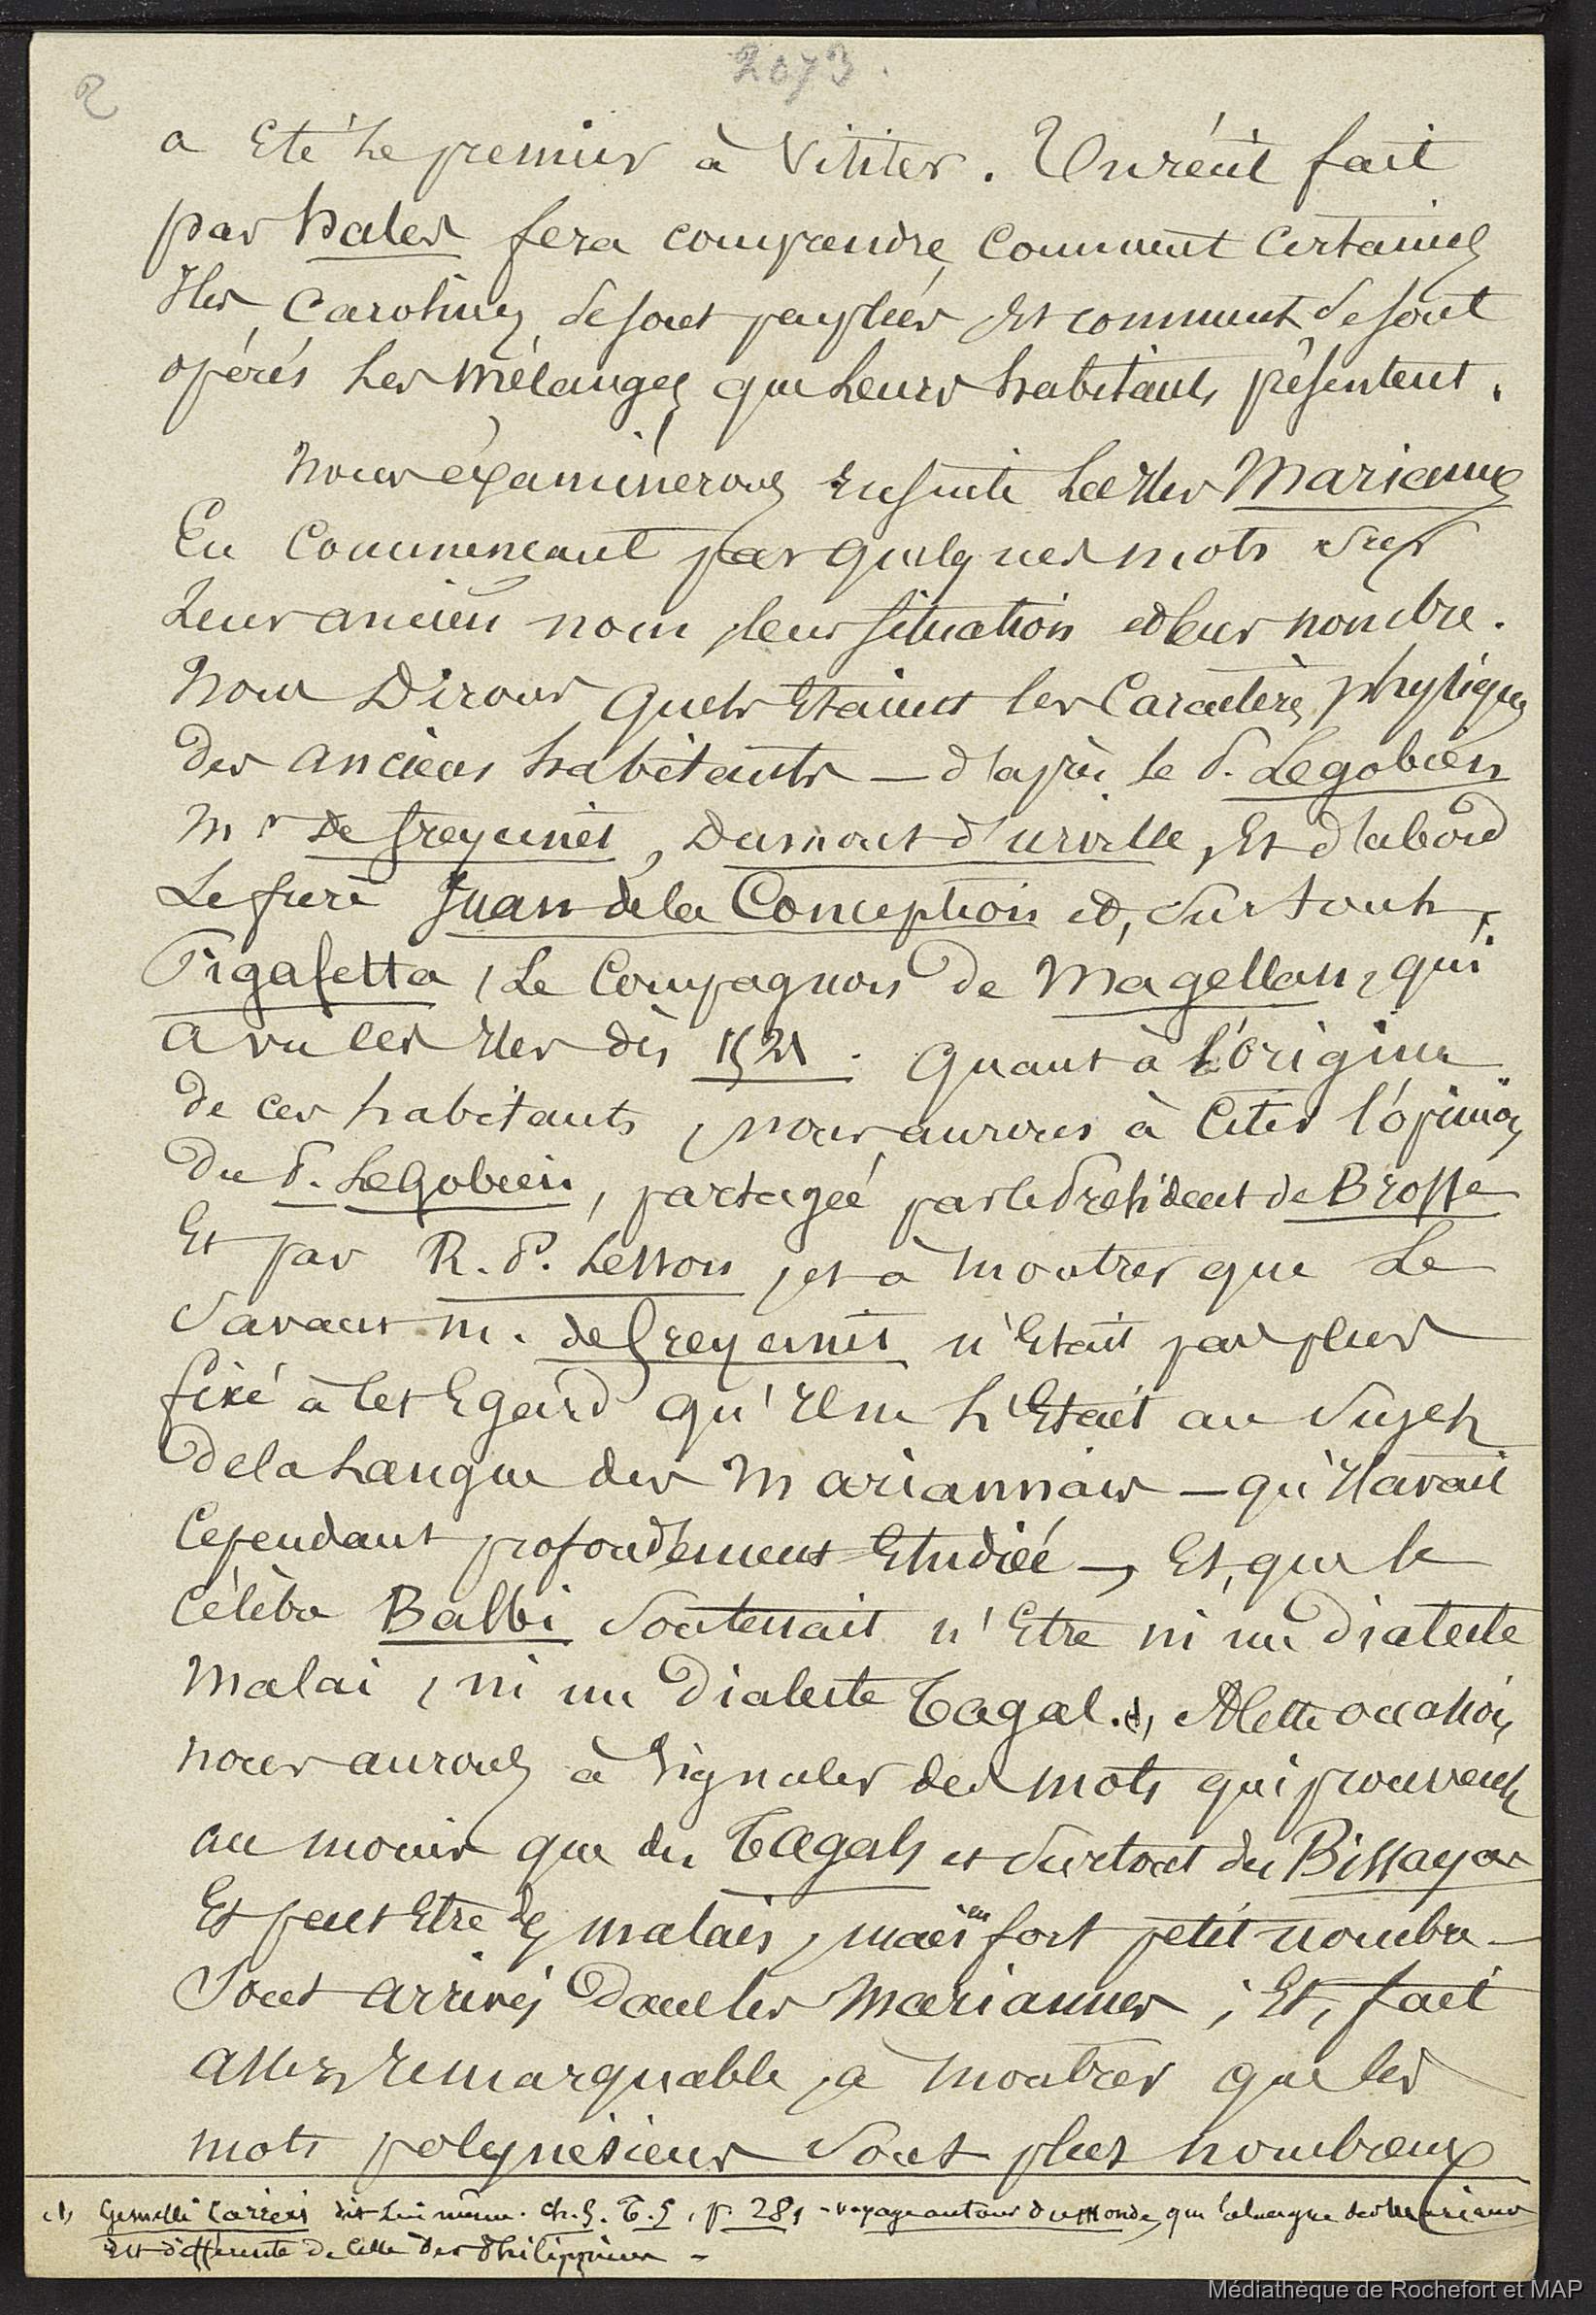 2
2073.
a Eté le premier à visiter. Un récit fait
par hales fera comprendre, comment certaines
Iles Carolines se sont peuplées et comment se sont
opérés les mélanges que leurs habitants présentent.
Nous éxaminerons ensuite les Iles Mariannes
En commencant par quelques mots sur
leur ancien nom, leur situation et leur nombre.
Nous Dirons quels Etaient les Caractères physiques
des anciens habitants — d'après le P. Legobien
Mr De freycinet, Dumont d'urville, Et d'abord
Le frère Juan de la Conception et, surtout,
Pigafetta, Le Compagnon de Magellan, qui
a vu ces Iles dès 1521. Quant à l'origine
de ces habitants, nous aurons à Citer l'opinion
Du P. LeGobien, partagée par le Président de Brosse
Et par R. P. Lesson, et à montrer que Le
Savant M. de freycinet n'Etait pas plus
fixé à cet Egard qu'Il ne l'Etait au Sujet
de la Langue des Mariannais — qu'Il avait
Cependant profondément Etudiée —, Et, que le
Célèbre Balbi Soutenait n'Etre ni un Dialecte
Malai, ni un Dialecte Tagal. (1) A Cette occasion,
nous aurons à Signaler des mots qui prouvent
au moins que des Tagals et Surtout des Bissayas
Et peut Etre des malais, mais en fort petit nombre —
Sont arrivés Dans les Mariannes ; Et, fait
assez remarquable, à montrer que les
mots polynésiens Sont plus nombreux
(1) Gemelli Carreri dit lui même. ch. 5. T. 5, p. 281 - voyage autour du Monde, que la langue des Marianes
Est différente de Celle Des Philippines —
Médiathèque de Rochefort et MAP